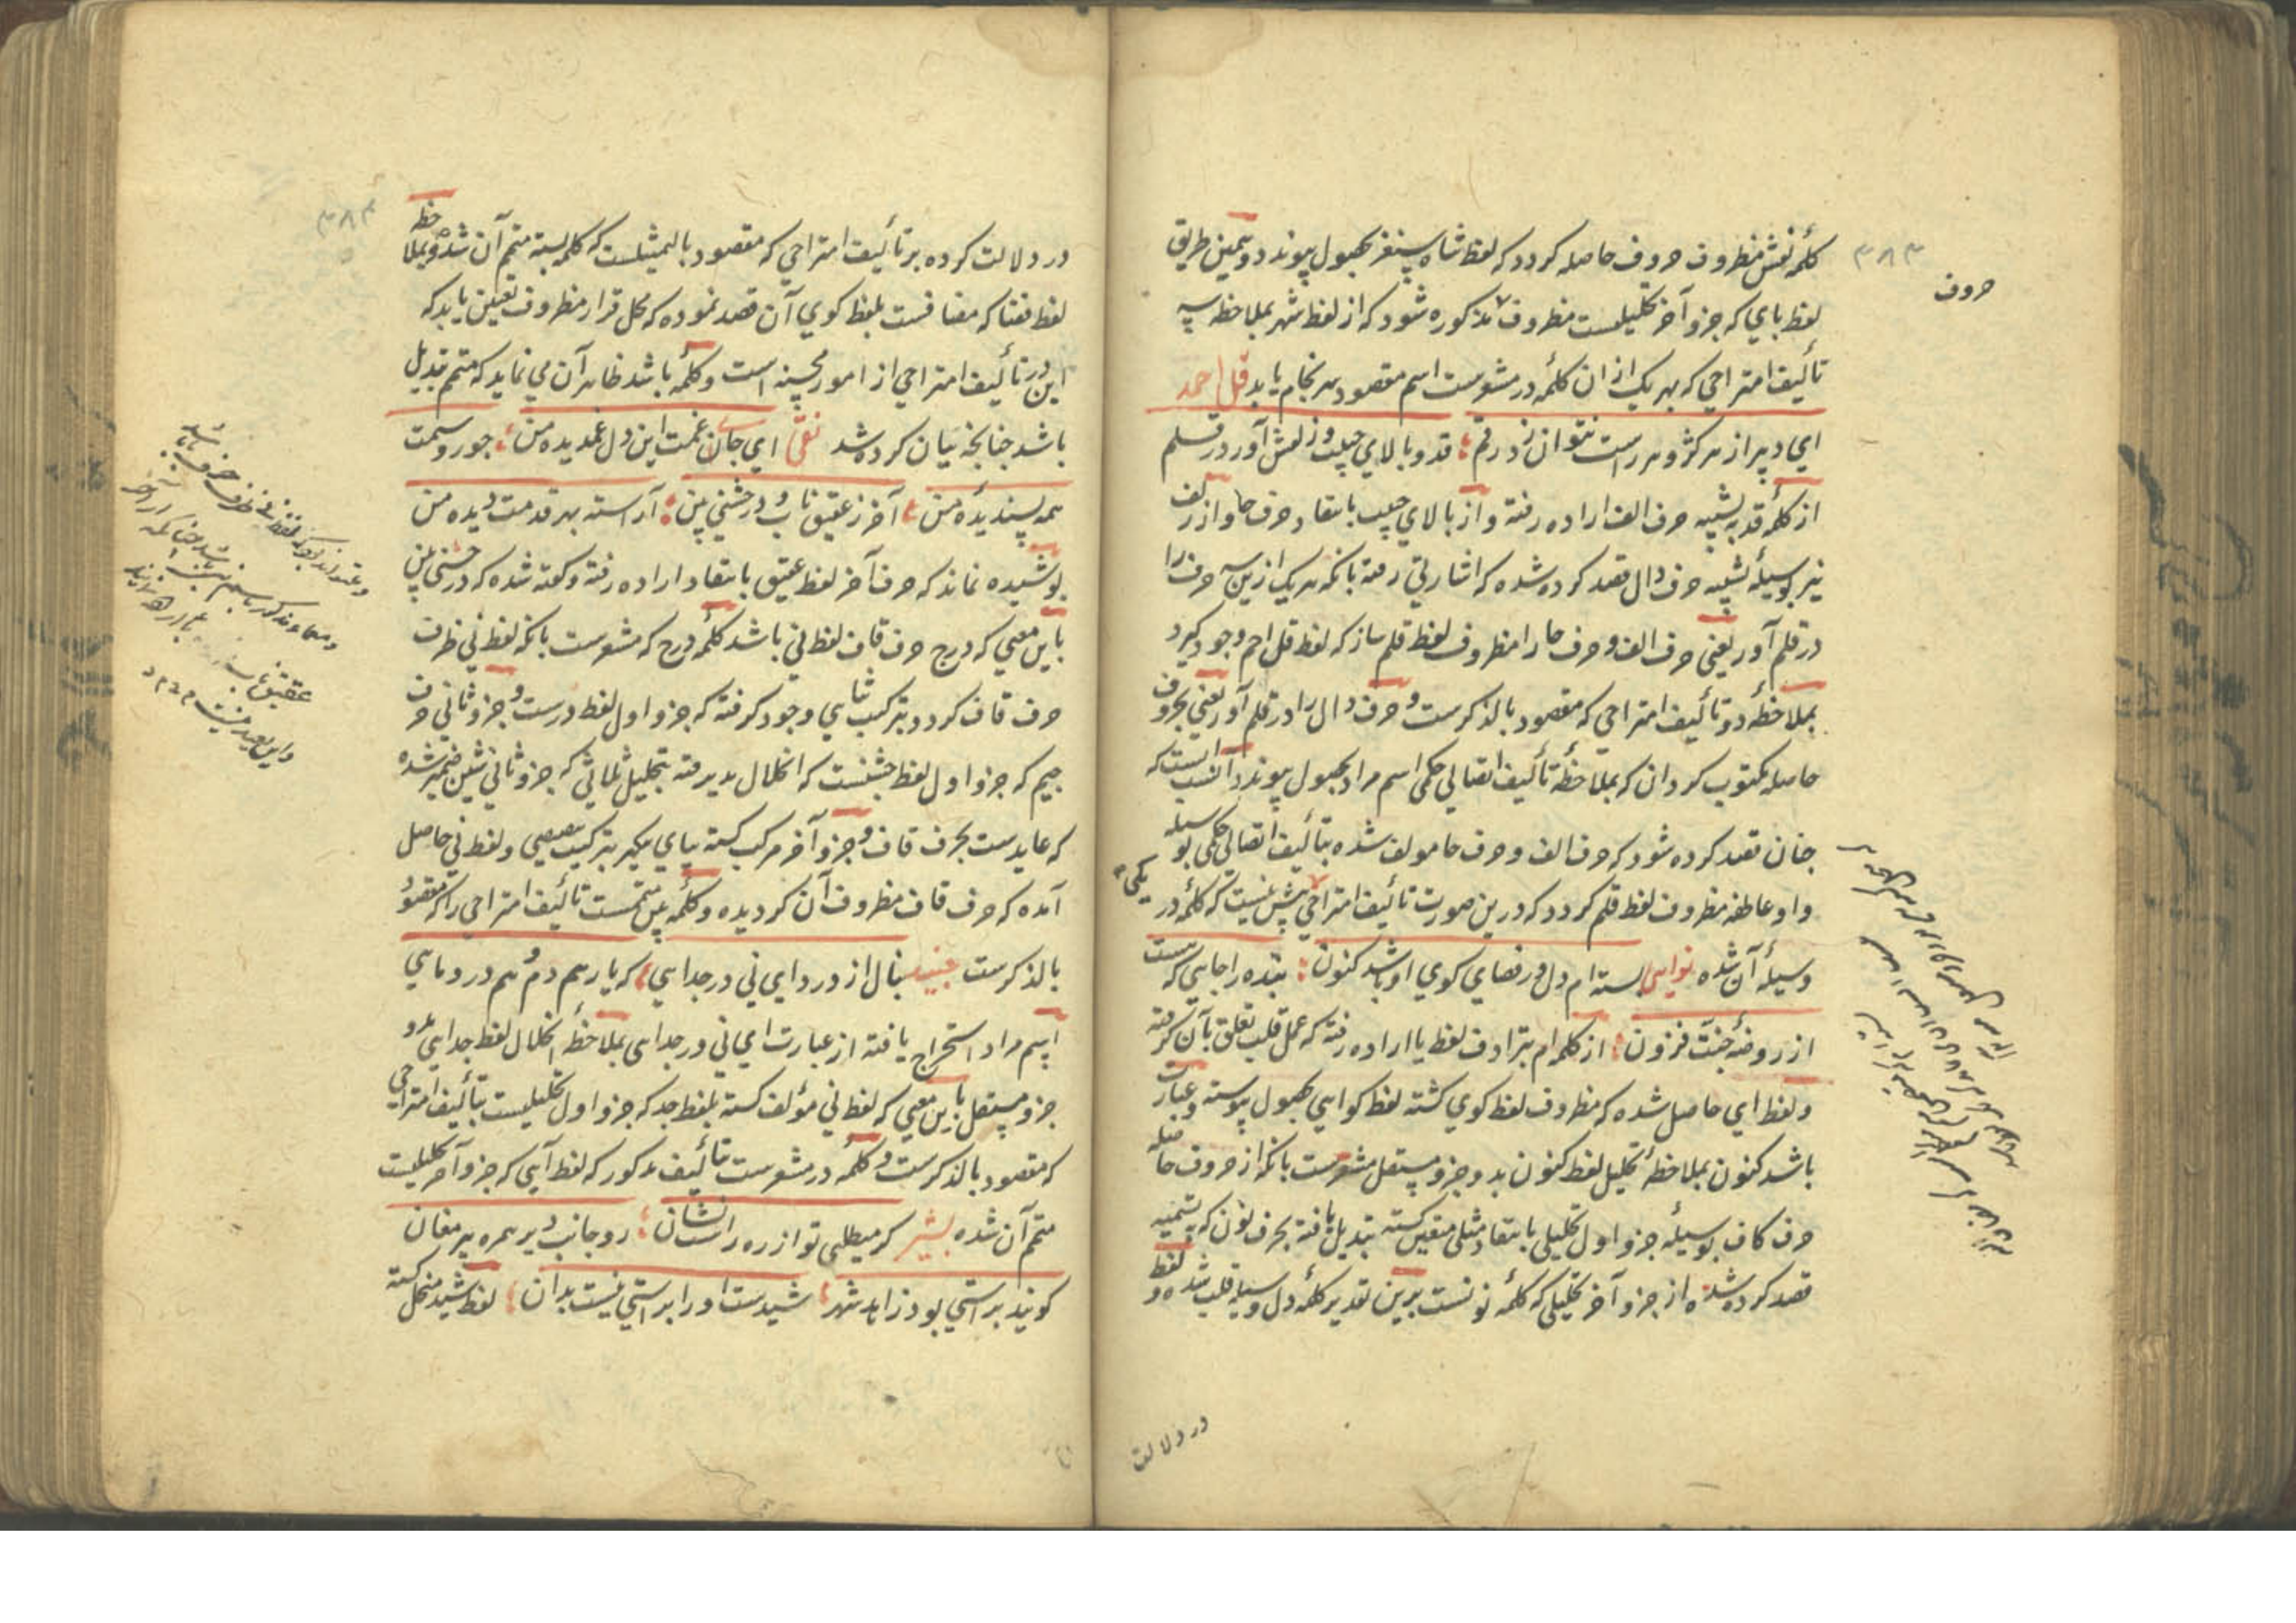 ٣٨٣
حروف
کلمهٔ نقش مظروف حروف حاصله کردد که لفظ شاه سنقر بحصول پیوندد و بهمین طریق
لفظ بای که جزو آخر تحلیلیست مظروف مذکوره شود که از لفظ شهر بملاحظه سه
تألیف امتزاجی که بهر یک از ان کلمهٔ در مشعرست اسم مقصود سرنجام یابد قل احمد
ای دبیر از هر کژ و هر راست نتوان زد رقم قد و بالای حبیب و زلفش آور در قلم
از کلمهٔ قد به تشبیه حرف الف اراده رفته و از بالای حبیب بانتقاد حرف حا و از زلف
نیز بوسیلهٔ تشبیه حرف دال قصد کرده شده که اشارتی رفته بانکه هر یک ازین سه حرف را
در قلم آور یعنی حرف الف و حرف حا را مظروف لفظ قلم ساز که لفظ قل احم وجود کیرد
بملاحظهٔ دو تألیف امتزاجی که مقصود بالذکرست و حرف دال را در قلم آور یعنی بحروف
حاصله مکتوب کردان که بملاحظهٔ تألیف اتصالی حکمی اسم مراد بحصول پیوندد و انسب آنست که
چنان قصد کرده شود که حرف الف و حرف حا مولف شده بتألیف اتصالی حکمی بوسیله
واو عاطفه مظروف لفظ قلم کردد که درین صورت تألیف امتزاجی بیش نیست که کلمهٔ در
وسیلهٔ آن شده نواہی بسته ام دل در فضای کوی او باشد کنون بنده را جایی که هست
از روضهٔ جنت فزون از کلمه ام بترادف لفظ یا اراده رفته که عمل قلب تعلق بآن کرفته
و لفظ ای حاصل شده که مظروف لفظ کوی کشته لفظ کوایی بحصول پیوسته و عبارت
باشد کنون بملاحظهٔ تحلیل لفظ کنون بدو جزو مستقل مشعرست بانکه از حروف حاصله
حرف کاف بوسیلهٔ جزو اول تحلیلی بانتقاد مثلی متعین کشته تبدیل یافته بحرف نون که بتسمیه
قصد کرده شده از جزو آخر تحلیلی که کلمهٔ نونست برین تقدیر کلمهٔ دل وسیلهٔ قلب شده و لفظ
در دلالت
٣٨۴
در دلالت کرده بر تألیف امتزاجی که مقصود بالتمثیلست که کلمه بسته متمم آن شده و بملاحظه
لفظ فضا که مضافست بلفظ کوی آن قصد نموده که محل قرار مظروف تعین یابد که
این در تألیف امتزاجی از امور محسنه است و کلمهٔ باشد ظاهر آن می نماید که متمم تبدیل
باشد چنانچه بیان کرده شد نقی ای جان غمت این دل غمدیده من جور و ستمت
همه پسندیدهٔ من آخر ز عقیق ناب و در جشنی بین آراسته بهر قدمت دیده من
پوشیده نماند که حرف آخر لفظ عقیق بانتقاد اراده رفته و گفته شده که درج شنی بین
باین معنی که درج حرف قاف لفظ نی باشد کلمهٔ درج که مشعرست بانکه لفظ نی ظرف
حرف قاف کردد بترکیب ثنایی وجود کرفته که جزو اول لفظ درست و جزو ثانی حرف
جیم که جزو اول لفظ جشنست که انحلال پذیرفته بتحلیل ثلاثی که جزو ثانی شین ضمیر شده
که عایدست بحرف قاف و جزو آخر مرکب کشته بیای نکیر بترکیب بعضی و لفظ نی حاصل
آمده که حرف قاف مظروف آن کردیده و کلمهٔ بین متممست تألیف امتزاجی را که مقصود
بالذکرست جنید بنال از درد ای نی در جدایی که یار هم دم و هم درد مایی
اسم مراد استخراج یافته از عبارت ای نی در جدایی بملاحظه انحلال لفظ جدایی بدو
جزو مستقل باین معنی که لفظ نی مؤلف کشته بلفظ جد که جزو اول تحلیلیست بتألیف امتزاجی
که مقصود بالذکرست و کلمهٔ در مشعرست بتألیف مذکور که لفظ آیی که جزو آخر تحلیلیست
متمم آن شده بشیر کر میطلبی تو از ره راست نشان رو جانب دیر همره پیر مغان
کویند براستی بود زاهد شهر شیدست او را براستی نیست بدان لفظ شید منحل کشته